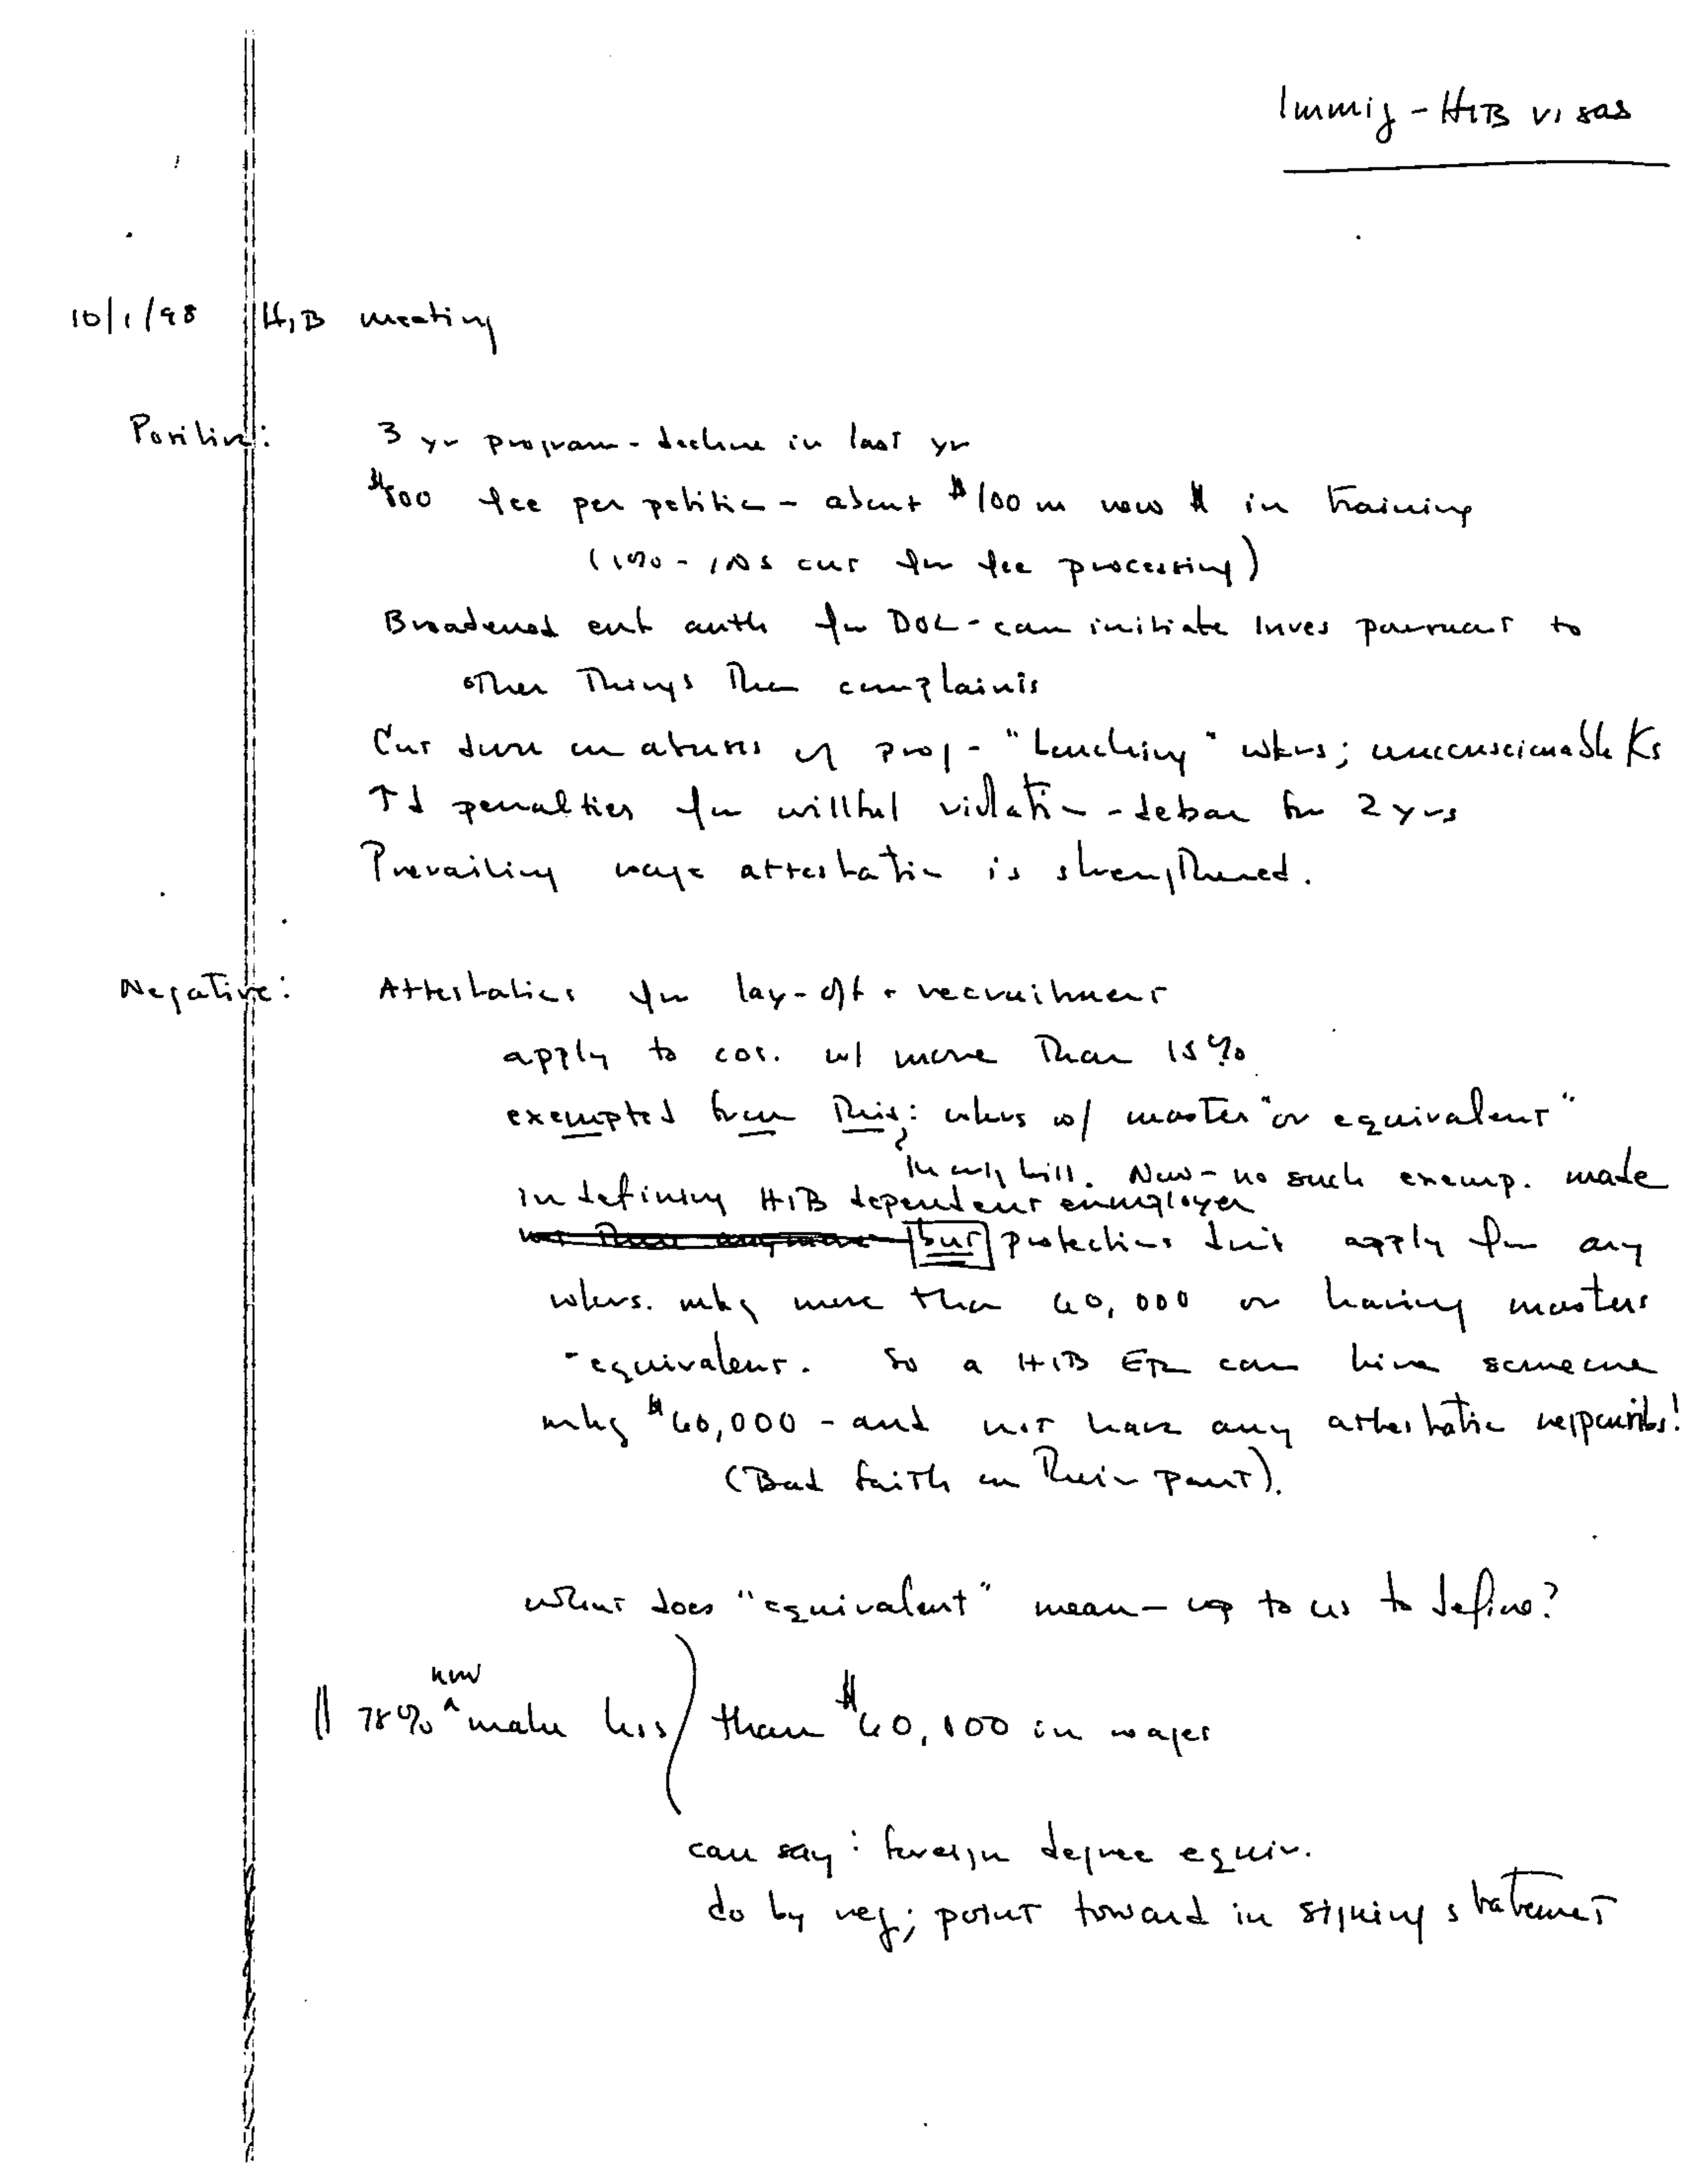 Immig - H1B visas
10/1/98 H1B meeting
Positive: 3 yr program - decline in last yr
$500 fee per petition - about $100m new $ in training
(1%- INS cut for fee processing)
Broadened enf auth for DOL - can initiate inves pursuant to
other things than complaints
Cut down on abuses of prog - "benching" wkrs; unconscionable Ks
↑d penalties for willful violation - debar for 2 yrs
Prevailing wage attestation is strengthened.
Negative: Attestations for lay-off + recruitment
apply to cos. w/ more than 15%
exempted from this: wkrs w/ master "or equivalent"
In early bill. Now - no such exemp. made
in defining H1B dependent employer
but protections don't apply for any
wkrs. mkg more than 60,000 or having masters
-equivalent. So a H1B ER can hire someone
mkg $60,000 - and not have any attestation responsibs!
(Bad faith on their part).
What does "equivalent" mean - up to us to define?
|| 78% now make less than $60,000 in wages
can say: foreign degree equiv.
do by reg; point toward in signing statement